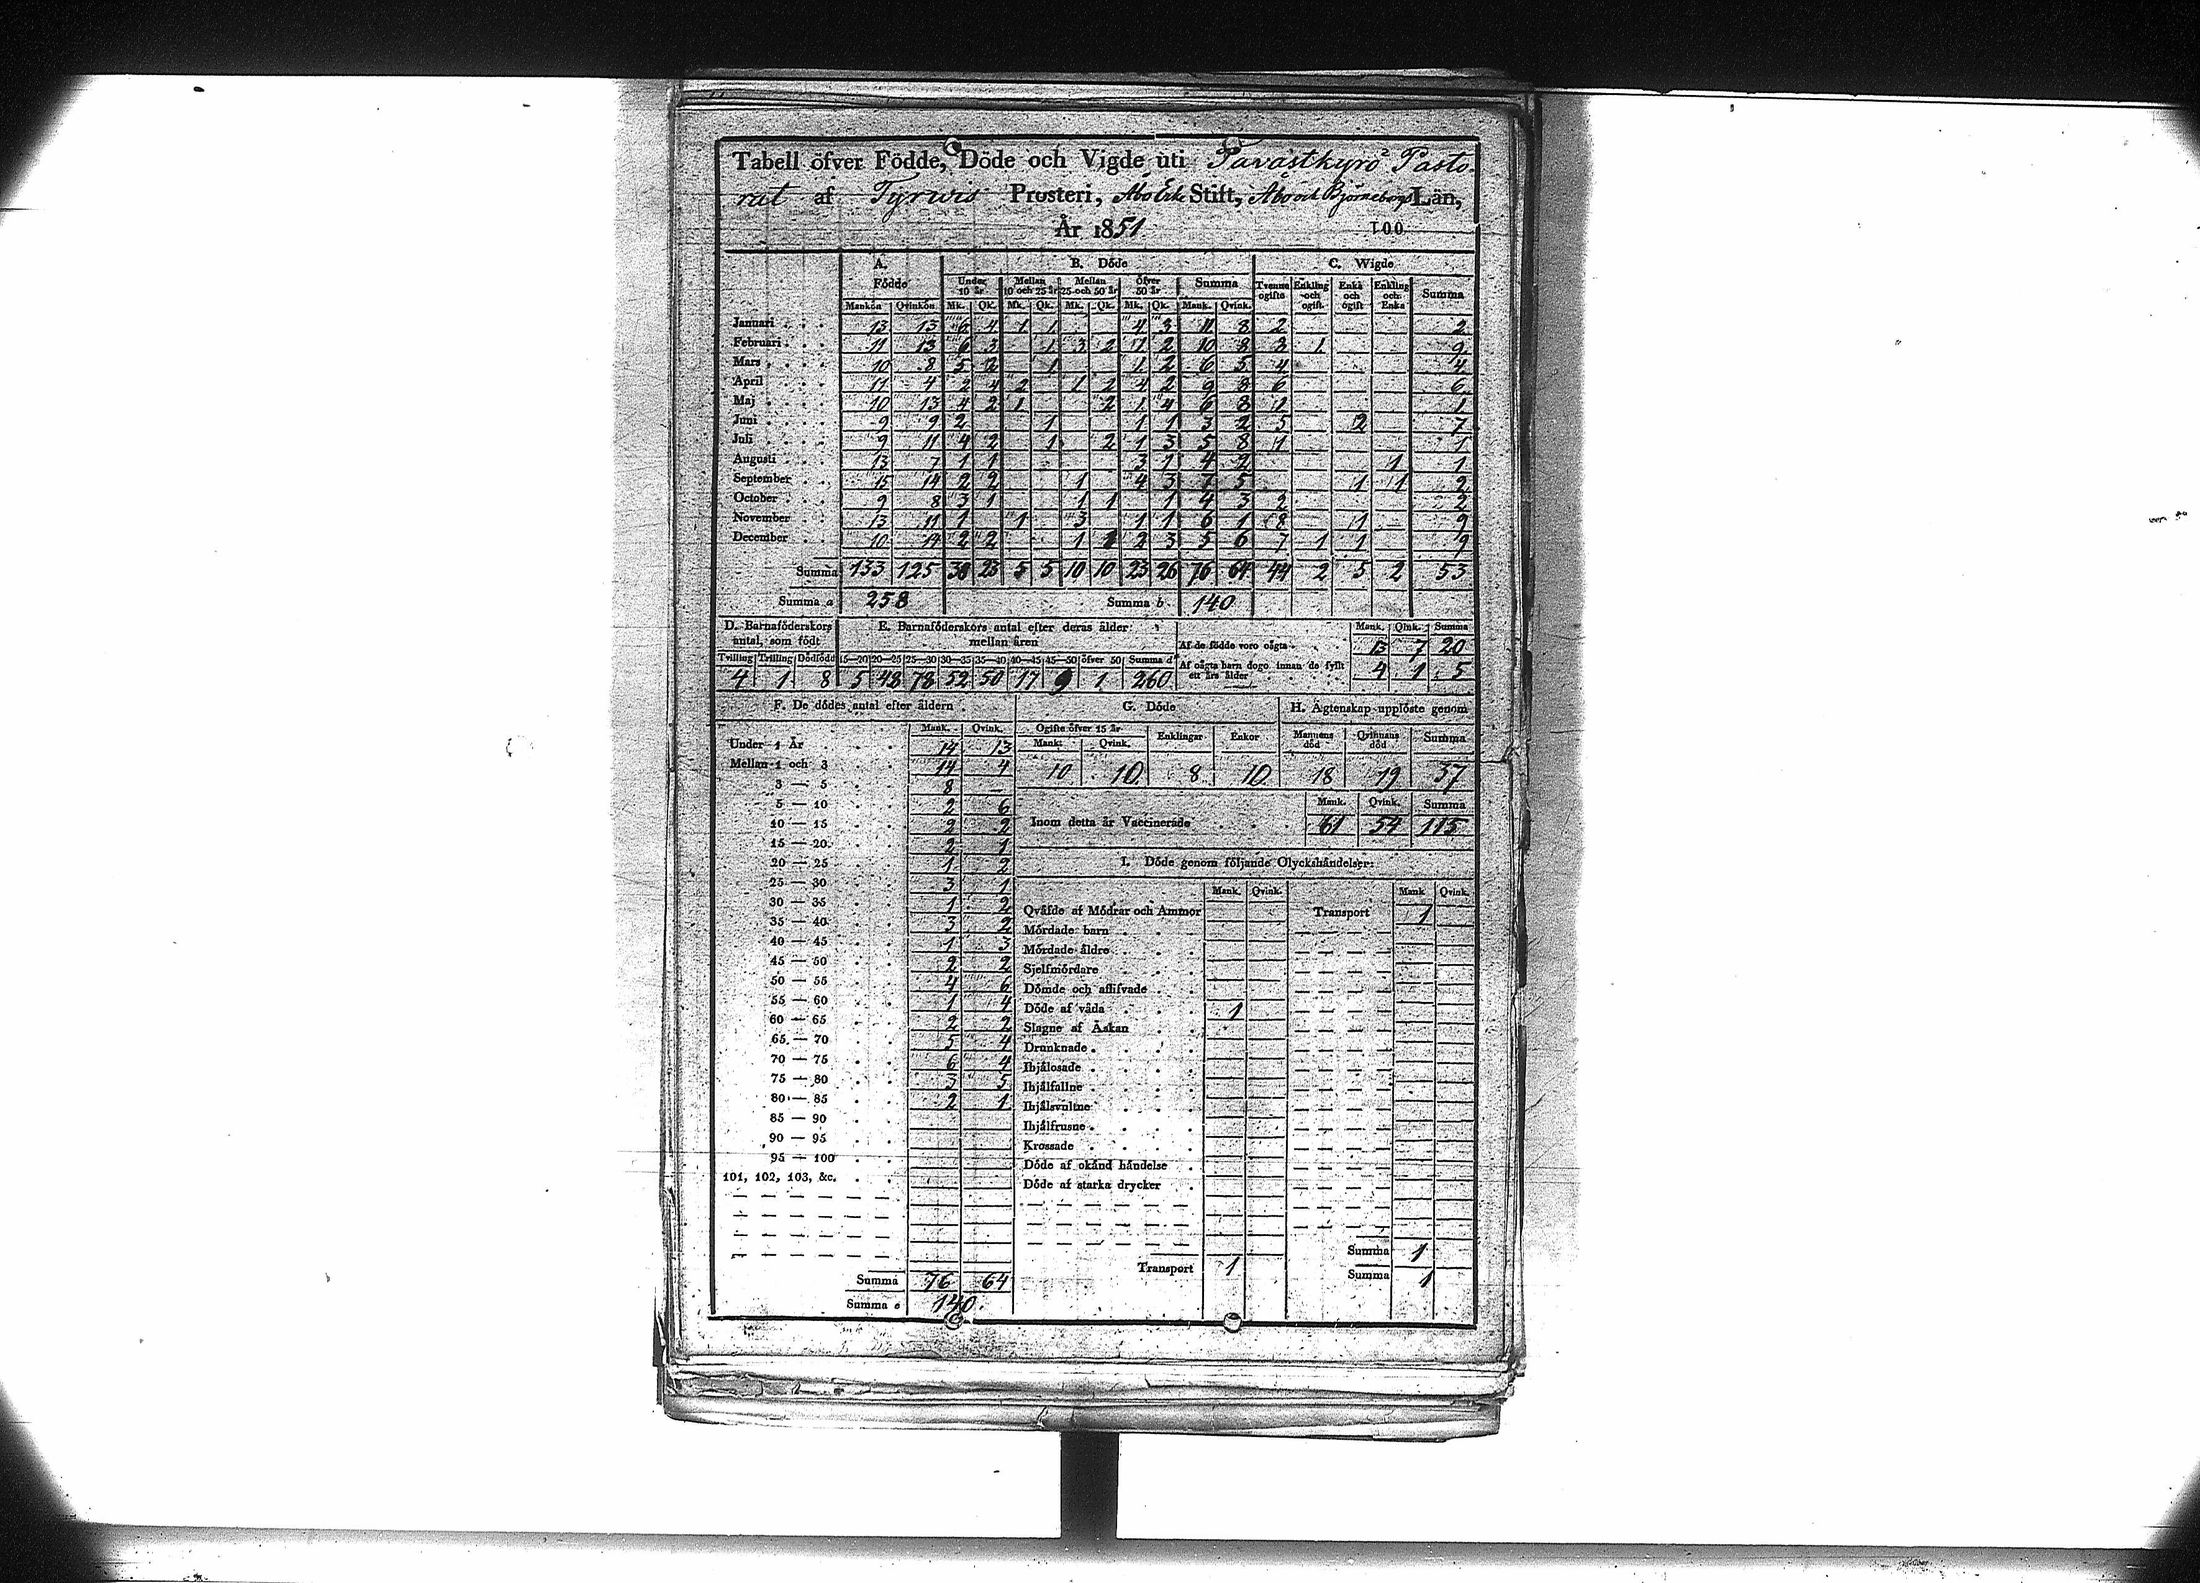 Tabell öfver Födde, Döde och Vigde uti Tavastkyrö Pasto-
rat af Tyrvis Prosteri, Åbo Erke Stift, Åbo och Björneborgs Län,
År 1851 100
A. Födde B. Döde C. Wigde
Under 10 år Mellan 10 och 25 år Mellan 25 och 50 år Öfver 50 år Summa Tvenne ogifte Enkling och ogift Enka och ogift Enkling och Enka Summa
Mankön Qvinkön Mk. Qk. Mk. Qk. Mk. Qk. Mk. Qk. Mank. Qvink.
Januari 13 13 6 4 1 1 4 3 11 8 2 2
Februari 11 13 6 3 1 3 2 1 2 10 8 3 1
Mars 10 8 5 2 1 1 2 6 5 4 4
April 11 4 2 4 2 1 2 4 2 9 8 6 6
Maj 10 13 4 2 1 2 1 4 6 8 1 1
Juni 9 9 2 1 1 1 3 2 5 2 7
Juli 9 11 4 2 1 2 1 3 5 8 1 1
Augusti 13 7 1 1 3 1 4 2 1 1
September 15 14 2 2 1 4 3 7 5 1 1 2
October 9 8 3 1 1 1 1 4 3 2 2
November 13 11 1 1 3 1 1 6 1 8 1 9
December 10 14 2 2 1 1 2 3 5 6 7 1 1 9
Summa 133 125 38 23 5 5 10 10 23 26 76 64 44 2 5 2 53
Summa a 258 Summa b 140
D. Barnaföderskors antal, som födt
Tvilling Trilling Dödfödd
4 1 8
E. Barnaföderskors antal efter deras ålder mellan åren
15—20 20—25 25—30 30—35 35—40 40—45 45—50 öfver 50 Summa d
5 48 78 52 50 17 9 1 260
Mank. Qink. Summa
Af de födde voro oägta 13 7 20
Af oägta barn dogo innan de fyllt ett års ålder 4 1 5
F. De dödes antal efter åldern
Mank. Qvink.
Under 1 År 14 13
Mellan 1 och 3 14 4
3 — 5 8 —
5 — 10 2 6
10 — 15 2 2
15 — 20 2 1
20 — 25 1 2
25 — 30 3 1
30 — 35 1 2
35 — 40 3 2
40 — 45 1 3
45 — 50 2 2
50 — 55 4 6
55 — 60 1 4
60 — 65 2 2
65 — 70 5 4
70 — 75 6 4
75 — 80 3 5
80 — 85 2 1
85 — 90
90 — 95
95 — 100
101, 102, 103, &c.
Summa 76 64
Summa e 140
G. Döde
Ogifte öfver 15 år Enklingar Enkor
Mank. Qvink.
10 10 8 10
H. Ägtenskap upplöste genom
Mannens död Qvinnans död Summa
18 19 37
Mank. Qvink. Summa
Inom detta år Vaccinerade 61 54 115
I. Döde genom följande Olyckshändelser:
Mank. Qvink. Mank Qvink.
Qväfde af Mödrar och Ammor Transport 1
Mördade barn
Mördade äldre
Sjelfmördare
Dömde och aflifvade
Döde af våda 1
Slagne af Åskan
Drunknade
Ihjälosade
Ihjälfallne
Ihjälsvultne
Ihjälfrusne
Krossade
Döde af okänd händelse
Döde af starka drycker
Summa 1
Transport 1
Summa 1